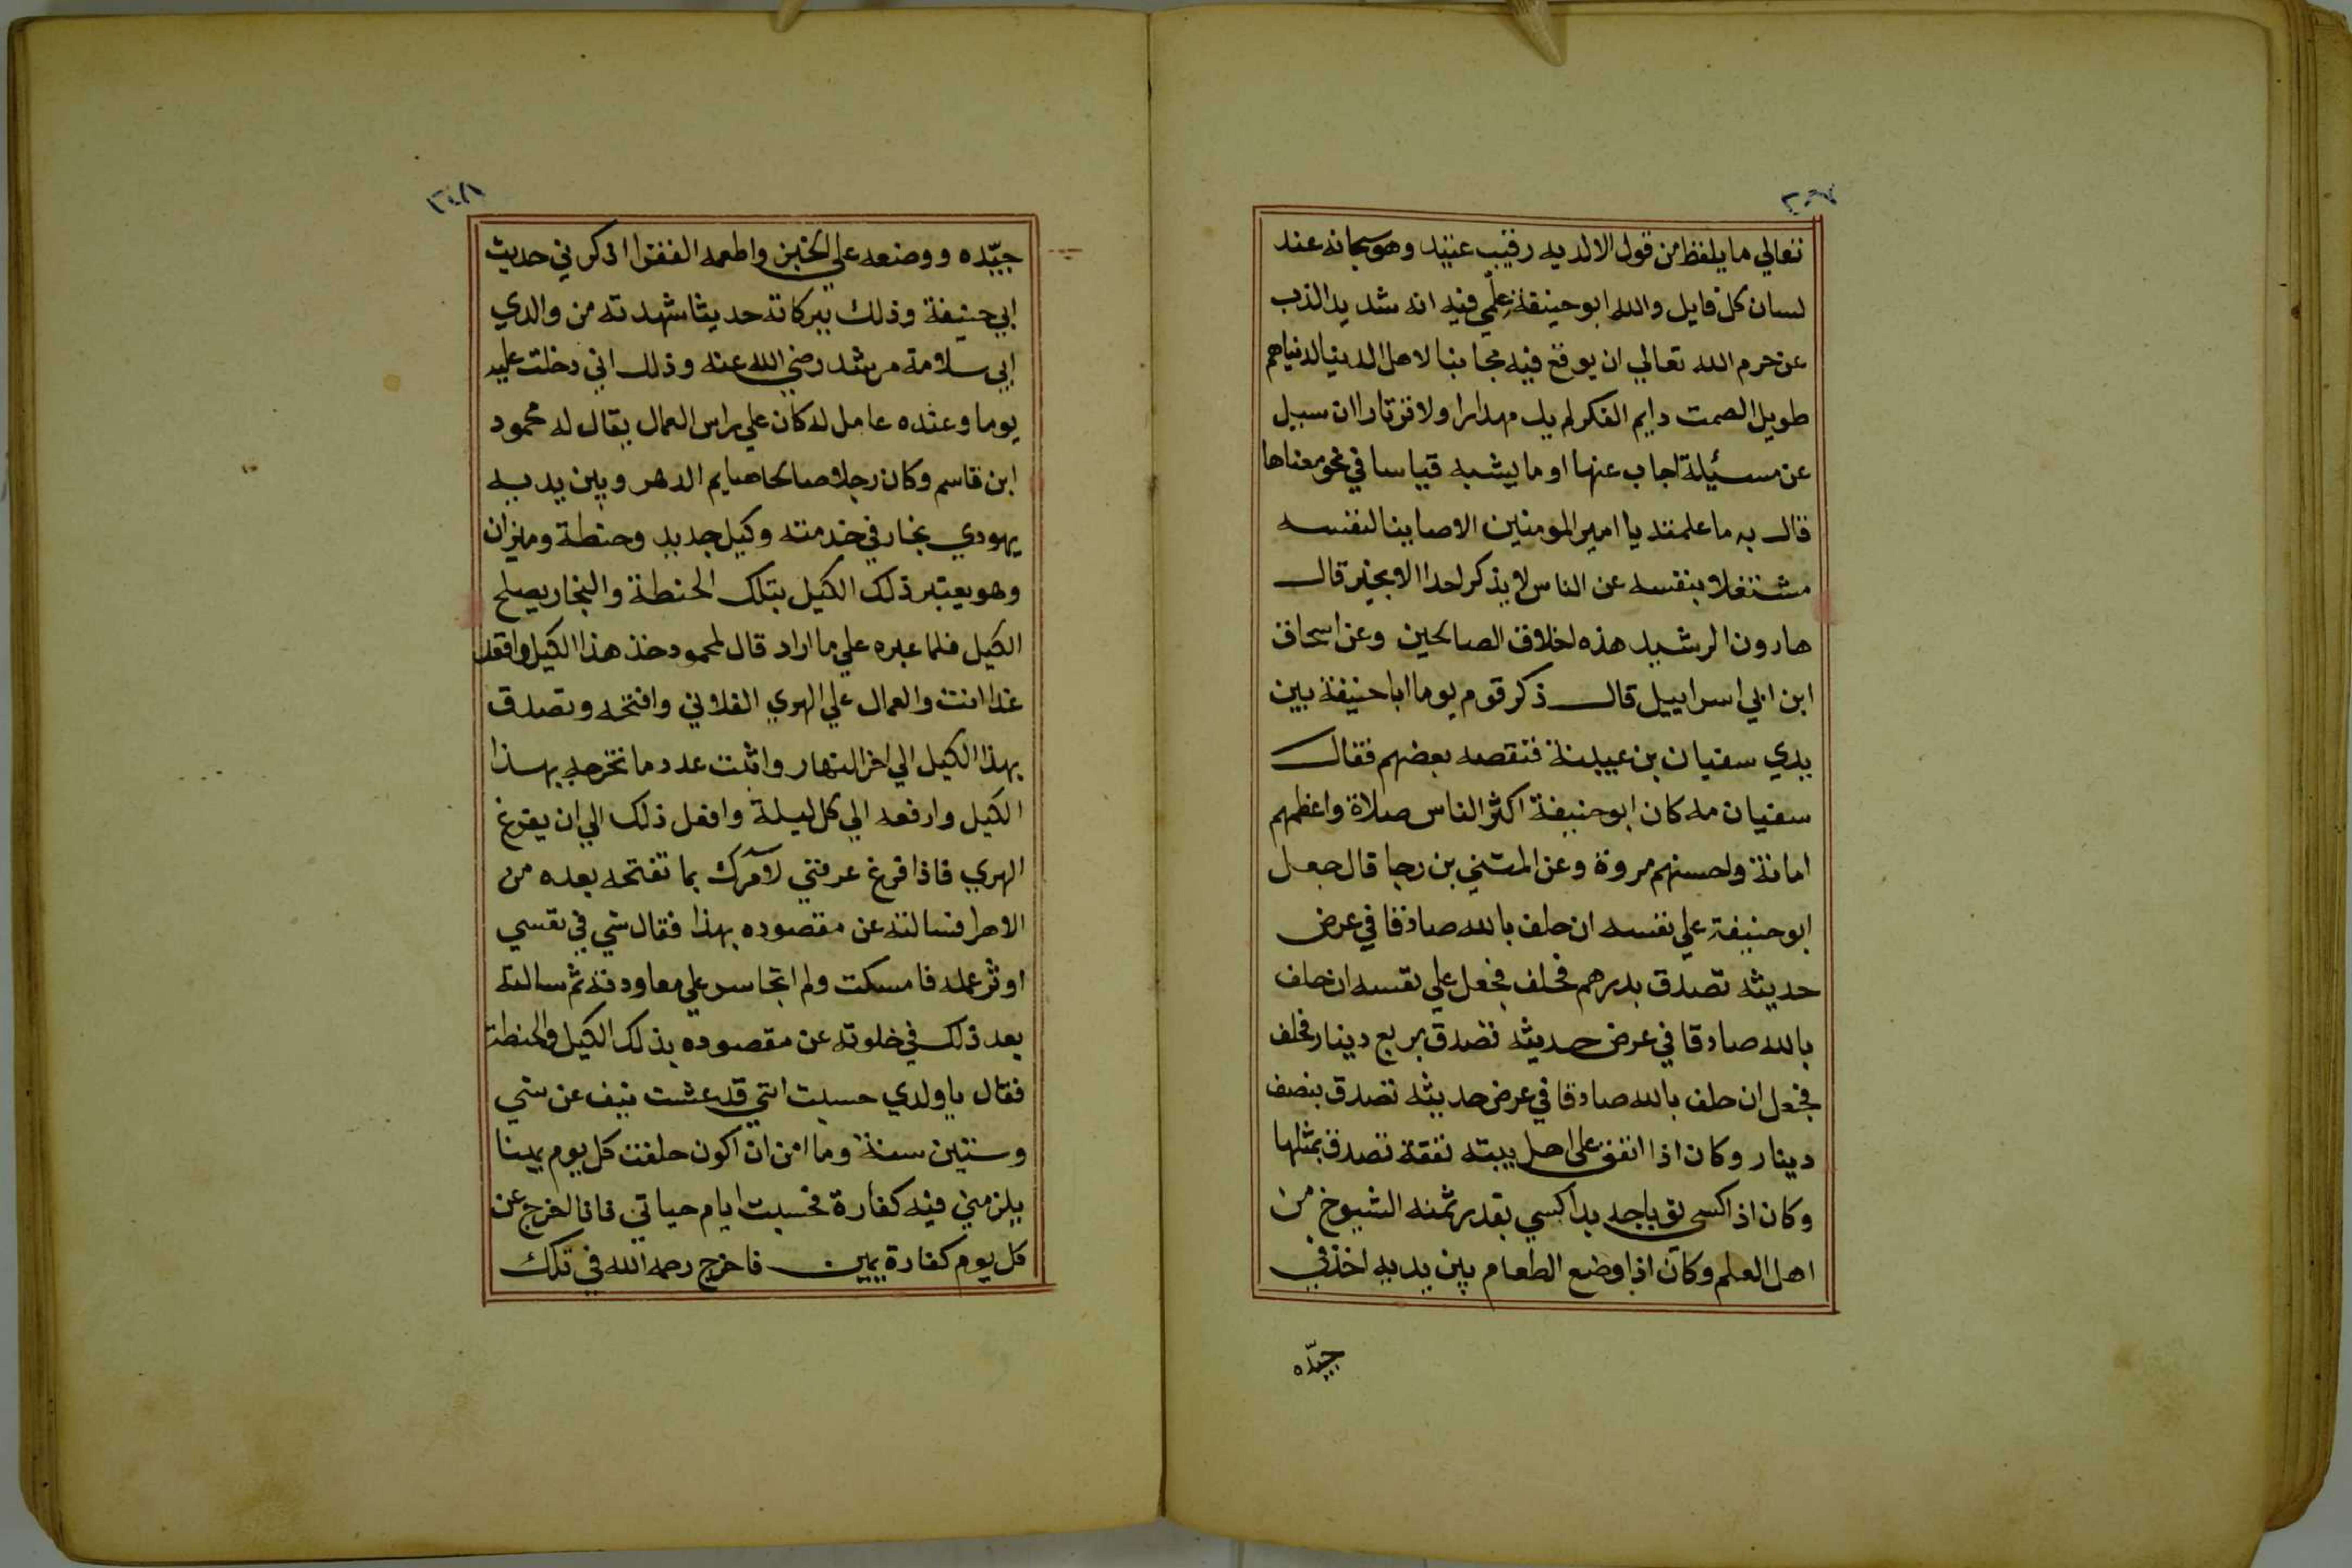 ٢٠٧
تعالي ما يلفظ من قول الا لديه رقيب عتيد وهو سبحانه عند
لسان كل قايل والله ابو حنيفة علمي فيه انه شديد الذب
عن حرم الله تعالي ان يوقع فيه مجانبا لاهل الدنيا لدنياهم
طويل الصمت دايم الفكر لم يك مهدارا ولا ثرثارا ان سيل
عن مسئيلة اجاب عنها او ما يشبه قياسا في نحو معناها
قال به ما علمته يا امير المومنين الا صاينا لنفسه
مشتغلا بنفسه عن الناس لا يذكر احدا الا بخير قال
هارون الرشيد هذه اخلاق الصالحين وعن اسحاق
ابن ابي اسراييل قال ذكر قوم يوما ابا حنيفة بين
يدي سفيان بن عيينة فنقصه بعضهم فقال
سفيان مه كان ابو حنيفة اكثر الناس صلاة واعظمهم
امانة واحسنهم مروة وعن المثني بن رجا قال جعل
ابو حنيفة علي نفسه ان حلف بالله صادقا في عرض
حديثه تصدق بدرهم فحلف فجعل علي نفسه ان حلف
بالله صادقا في عرض حديثه تصدق بربع دينار فحلف
فجعل ان حلف بالله صادقا في عرض حديثه تصدق بنصف
دينار وكان اذا انفق على اهل بيته نفقة تصدق بمثلها
وكان اذا كسي ثوبا جديدا كسي بقدر ثمنه الشيوخ من
اهل العلم وكان اذا وضع الطعام بين يديه اخذ في
جيّده
٢٠٨
جيّده ووضعه علي الخبز واطعمه الفقرا اذكرني حديث
ابي حنيفة وذلك ببركاته حديثا شهدته من والدي
ابي سلامة مرشد رضي الله عنه وذلك اني دخلت عليه
يوما وعنده عامل له كان علي راس العمال يقال له محمود
ابن قاسم وكان رجلا صالحا صايم الدهر وبين يديه
يهودي نجار في خدمته وكيل جديد وحنطة وميزان
وهو يعتبر ذلك الكيل بتلك الحنطة والنجار يصلح
الكيل فلما عبره علي ما اراد قال لمحمود خذ هذا الكيل واقعد
غدا انت والعمال علي الهري الفلاني وافتحه وتصدق
بهذا الكيل الي اخر النهار واثبت عدد ما تخرجه بهذا
الكيل وارفعه الي كل ليلة وافعل ذلك الي ان يفرغ
الهري فاذا فرغ عرفني لآمرك بما تفتحه بعده من
الاهرا فسالته عن مقصوده بهذا فقال شي في نفسي
اوثر عمله فامسكت ولم اتجاسر علي معاودته ثم سالته
بعد ذلك في خلوته عن مقصوده بذلك الكيل والحنطة
فقال يا ولدي حسبت انني قد عشت نيف عن شي
وستين سنة وما امن ان اكون حلفت كل يوم يمينا
يلزمني فيه كفارة فحسبت ايام حياتي فانا اخرج عن
كل يوم كفارة يمين فاخرج رحمه الله في تلك